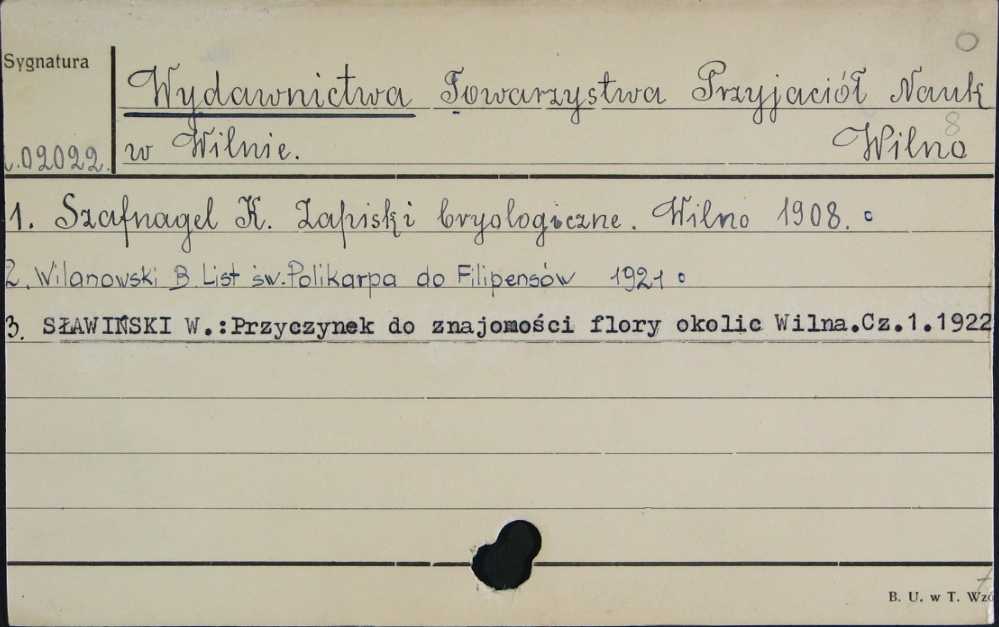 Sygnatura
Wydawnictwa Towarzystwa Przyjaciół Nauk
.02022. w Wilnie. Wilno 8
1. Szafnagel K. Zapiski bryologiczne. Wilno 1908.
2. Wilanowski B List św. Polikarpa do Filipensów 1921
3. SŁAWIŃSKI W.:Przyczynek do znajomości flory okolic Wilna.Cz.1.1922
B. U. w T.